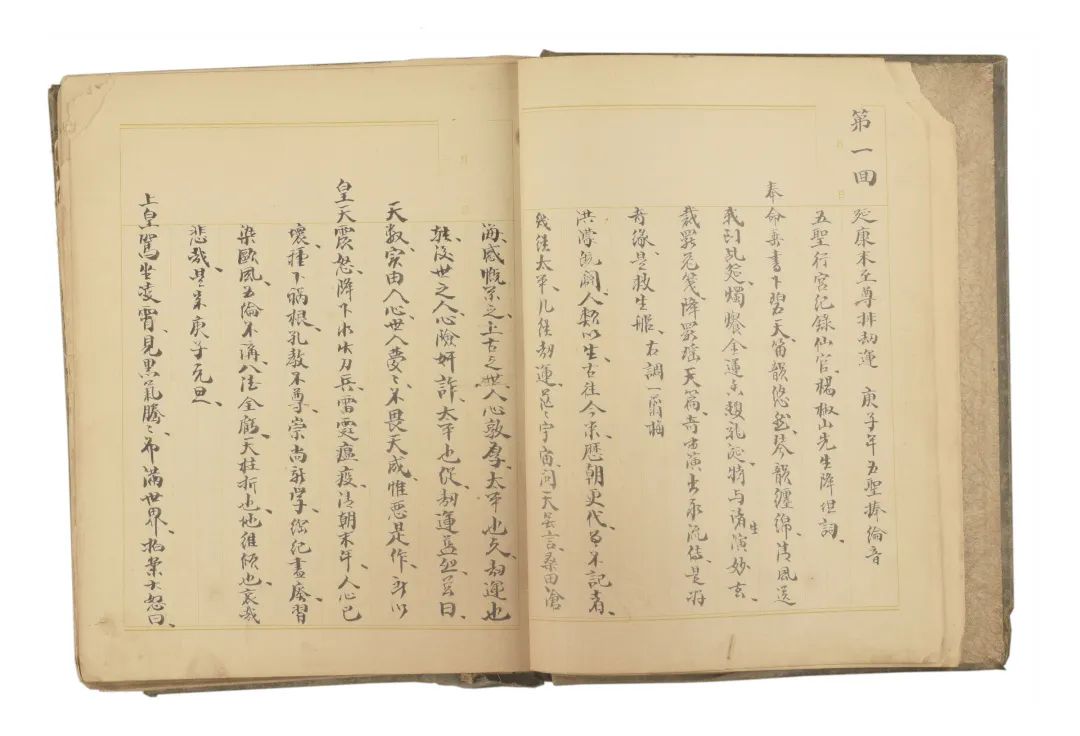 第一回
延康木至尊排劫運 庚子年五聖捧綸音
五聖行宮紀錄仙官楊椒山先生降坦詞、
奉命垂書下碧天笛韻悠然琴韻纏綿、清風送
我到乩筵、燭燦金蓮香趨乱涎、特与浦生演妙玄、
裁罷花箋、降罷瑤天篇、奇出演出永流傳、是前
奇緣、是救生船、右調一剪梅
洪濛既闢、人類以生、古往今来、歷朝更代、不記者、
幾經太平、几經劫運、茫々宇宙、問天無言、桑田滄
海、感慨系之、上古之世、人心敦厚、太平也久、劫運也
短、後世之人、心險奸詐、太平也促、劫運益烈、豈曰、
天數、實由人心、世人夢々、不畏天威、惟惡是作、所以
皇天震怒、降下水火刀兵雷霆瘟疫、清朝末年、人心已
壞、種下禍根、孔教不尊、崇尚新學、綱紀盡廢、習
染歐風、五倫不講、八德全虧、天柱折也、地維傾也、哀哉
悲哉、是年庚子元旦、
上皇駕坐凌霄、見黑氣騰々、布滿世界、拍案大怒曰、